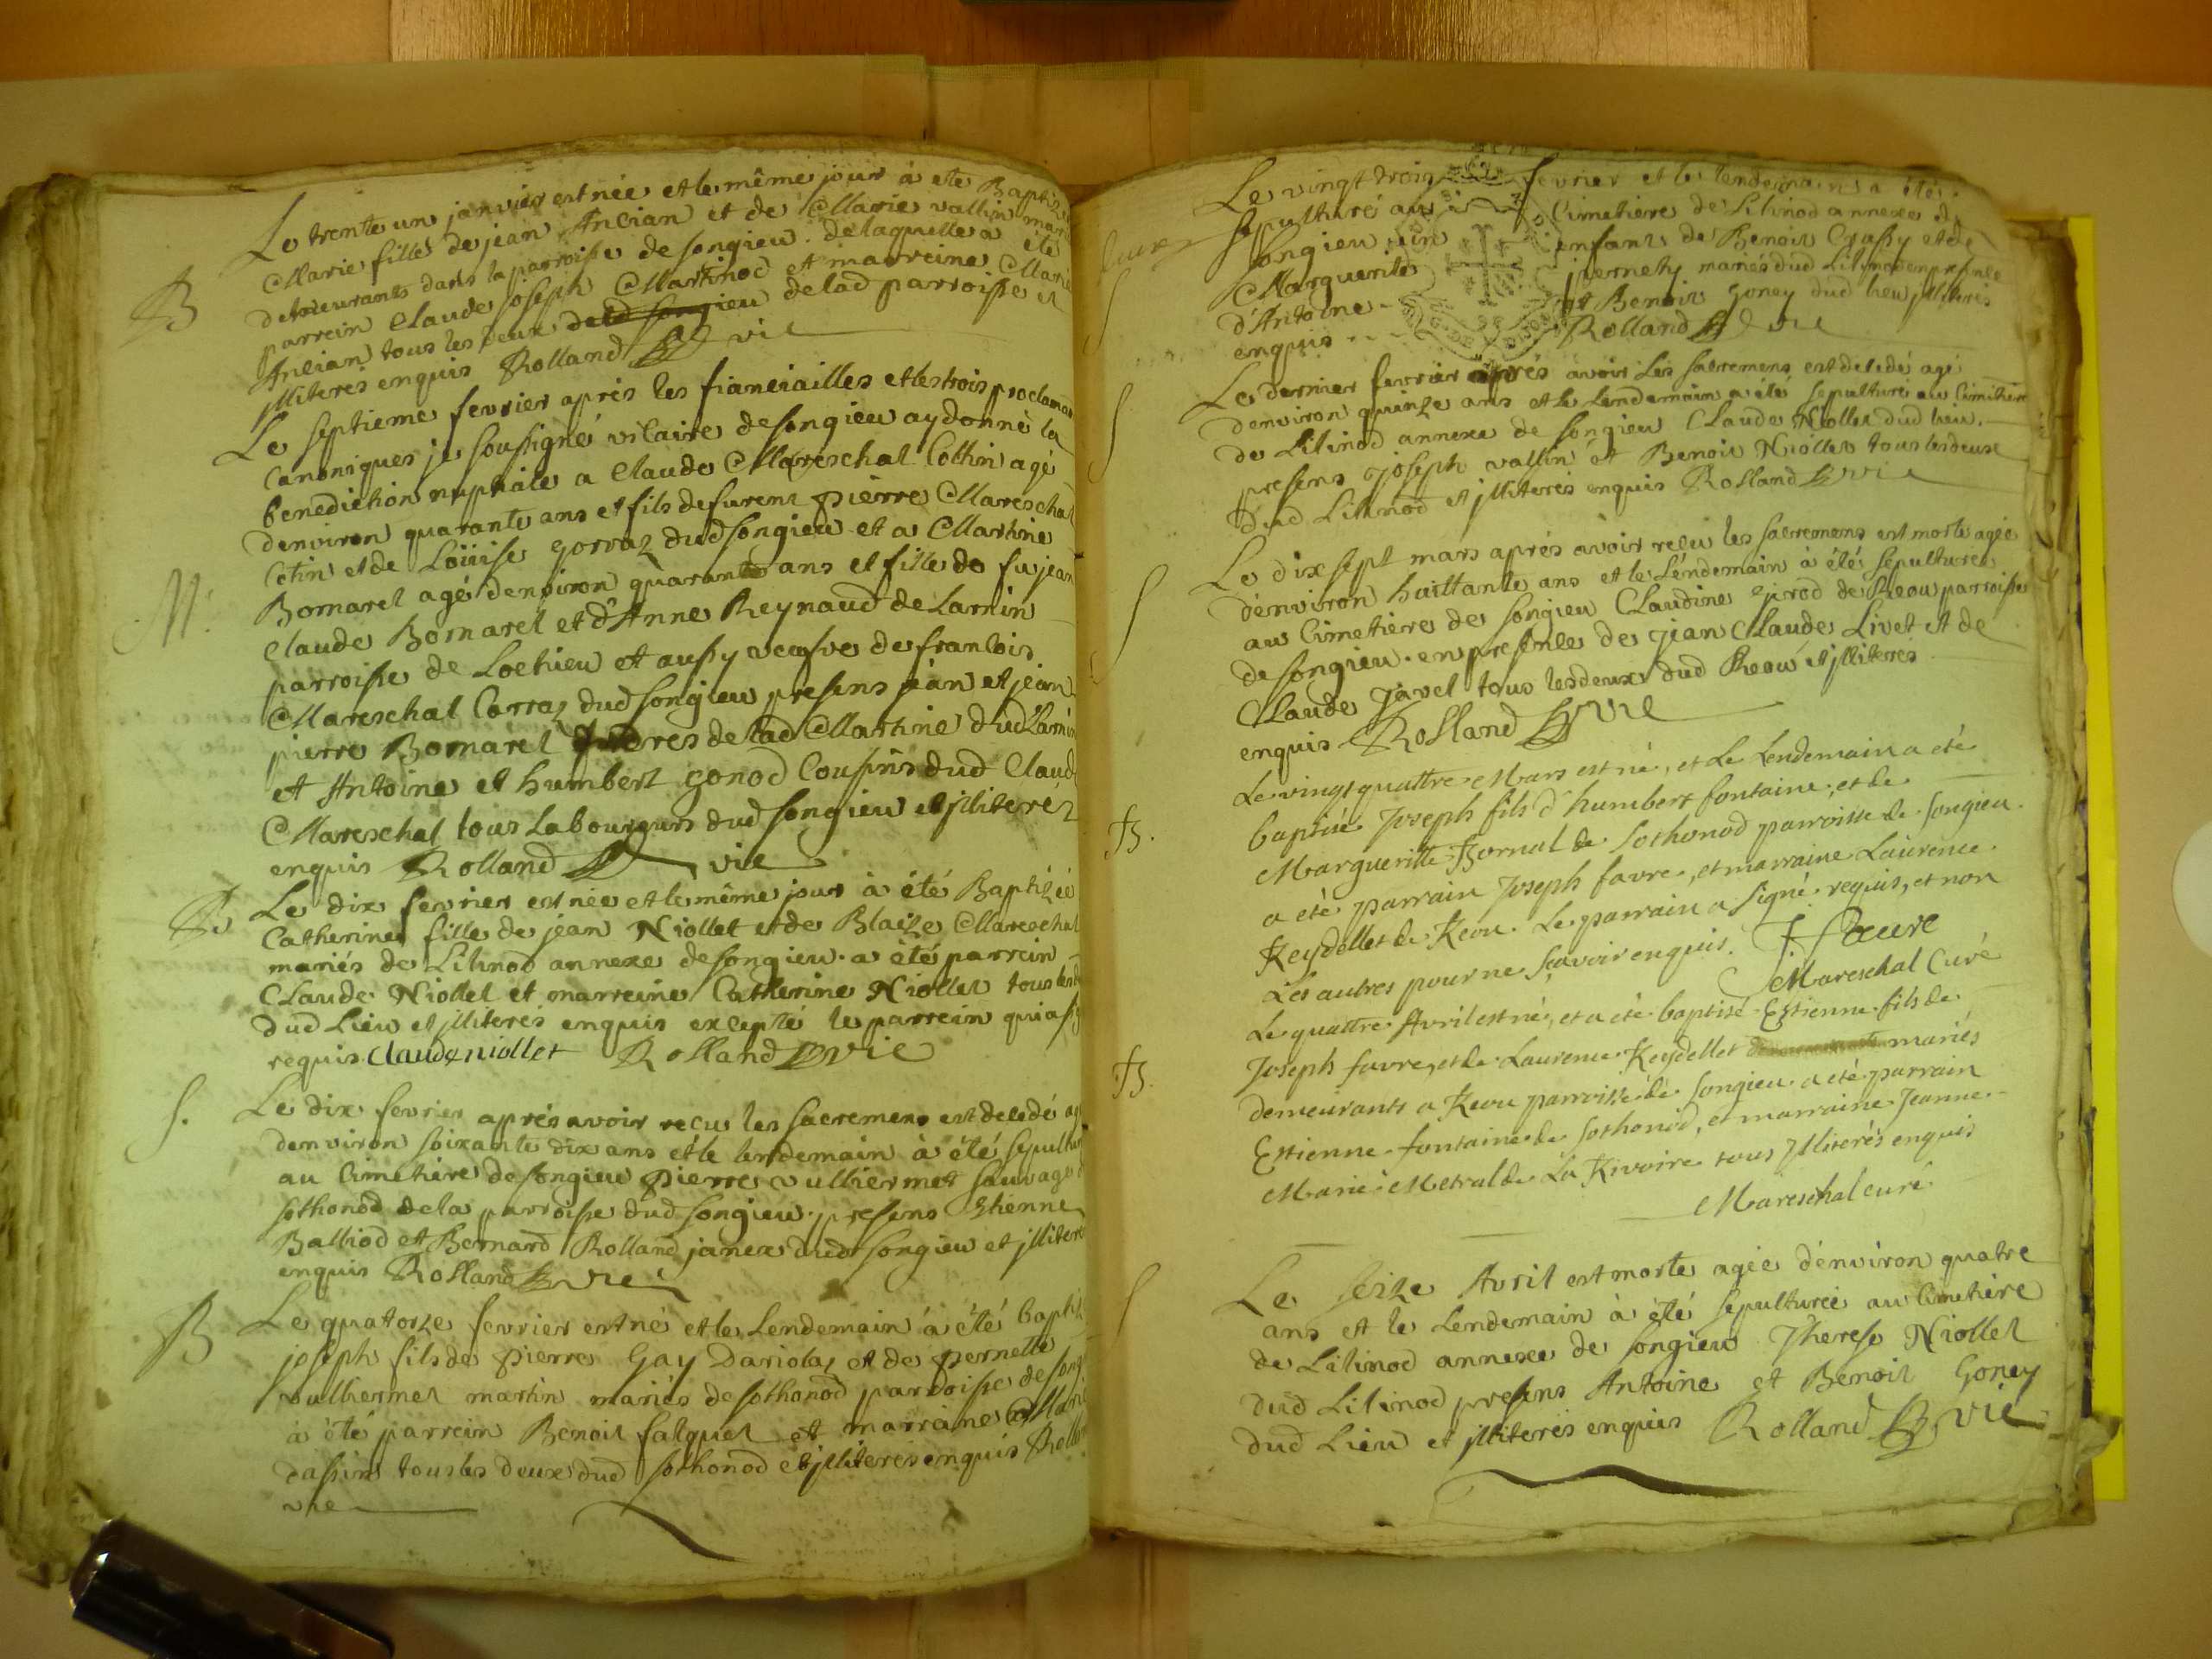 B
Le trente un janvier est née et le même jour à ete Baptis
Marie fille de jean Ancian et de Marie vallin mari
demeurants dans la parroisse de songieu. de laquelle a été
parrein Claude joseph Martinod et marreine Marie
Ancian tous les deux de lad parroisse et
jlliteres enquis Rolland vic
M.
Le septieme fevrier aprés les fianciailles et les trois proclama
Canoniques je soussigné vicaire de songieu ay donné la
benediction nuptiale a Claude Mareschal Cottin agé
denviron quarante ans et fils defurent pierre Mareschal
Cotin et de Loüise gorraz dud songieu et a Martine
Bomarel agé denviron quarante ans et fille de fu jean
Claude Bomarel et d'Anne Reynaud de Lamin
parroisse de Lochieu et aussy veufve de francois
Mareschal Corraz dud songieu presens jean et jean
pierre Bomarel freres de lad Martine dud Lamin
et Antoine et humbert gonod Cousins dud Claud
Mareschal tous Laboureurs dud songieu et jlliteréz
enquis Rolland vic
B
Le dix fevrier est née et le même jour à été Baptizée
Catherine fille de jéan Niollet et de Blaize Mareschal
mariés de Lilinod annexe de songieu. a été parrein
CLaude Niollet et marreine Catherine Niollet tous
dud Lieu et jlliteres enquis excepté le parrein qui a
requis. Claude niollet Rolland vic
S.
Le dix fevrier aprés avoir recu les sacremens est decedé ag
denviron soixante dix ans et le lendemain à été sepultur
au Cimetiere de songieu pierre vulliermet sauvage d
sothonod de la parroisse dud songieu. presens Etienne
Balliod et Bernard Rolland janex dud songieu et jllitere
enquis Rolland vic
B
Le quatorze fevrier est né et le Lendemain à été bapti
joseph fils de pierre Gay Dariolaz et de pernette
vulliermet martin mariés de sothonod parroisse de song
à été parrein Benoit falquet et marreine Mari
dassin tous les deux dud sothonod et jlliteres enquis Roll
vic
Le vingt trois fevrier et le lendemain a été
sepulturé au Cimetiere de Lilinod annexe de
songieu un enfant de Benoit Crassy et de
Marguerite pernety mariés dud Lilinod en presence
d'Antoine et Benoit Goney dud lieu jlliteres
enquis Rolland vic
S
Le dernier fevrier aprés avoir Les sacremens est decedé agé
denviron quinze ans et le Lendemain a été sepulturé au Cimitiere
de Lilinod annexe de songieu CLaude Niollet dud lieu.
presens joseph vallin et Benoit Niollet tous les deux
dud Lilinod et jlliteres enquis Rolland vic
S
Le dix sept mars aprés avoir reçu les sacremens est morte agée
d'environ huittante ans et le Léndemain à été sepulturée
au Cimetiere de songieu CLaudine girod de Reou parroisse
de songieu. en presence de jean CLaude Livet et de
CLaude Javel tous les deux dud Reou et jlliteres
enquis Rolland vic
B.
Le vingt quattre Mars est né, et Le Lendemain a eté
baptisé Joseph fils d'humbert fontaine, et de
Margueritte Bornal de Sothonod parroisse de Songieu.
a eté parrain Joseph favre, et marraine Laurence
Reydellet de Reou. Le parrain a signé requis, et non
Les autres pour ne sçavoir enquis. J faure
Mareschal Curé
B.
Le quattre Avril est né, et a eté baptisé Estienne fils de
Joseph favre, et de Laurence Reydellet mariés
demeurants a Reou parroisse de Songieu a eté parrain
Estienne fontaine de Sothonod, et marraine Jeanne
Marie Metral de La Rivoire tous Jlliterés enquis
Mareschal curé.
S
Le seize Avril est morte agée d'environ quatre
ans et le Lendemain à été sepulturée au Cimetiere
de Lilinod annexe de songieu Therese Niollet
dud Lilinod presens Antoine et Benoit Goney
dud Lieu et jlliterés enquis Rolland vic